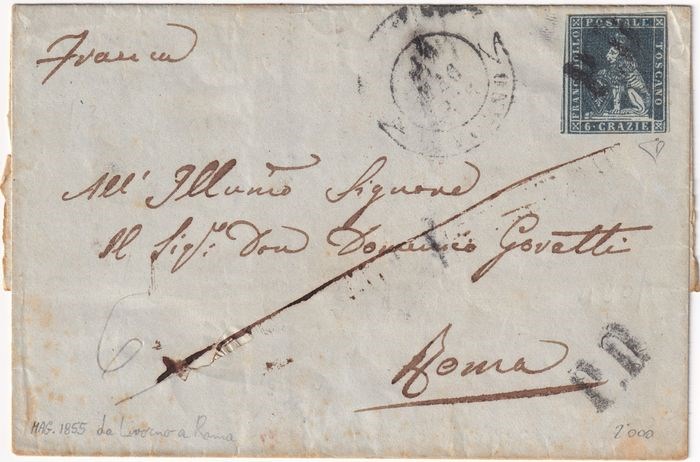 Franca
FRANCOBOLLO
POSTALE
TOSCANO
6·CRAZIE
All' Illumo Signore
Il Sigr. Don Domenico Govatti
6
Roma
P.D.
MAG. 1855 da Livorno a Roma
2'000